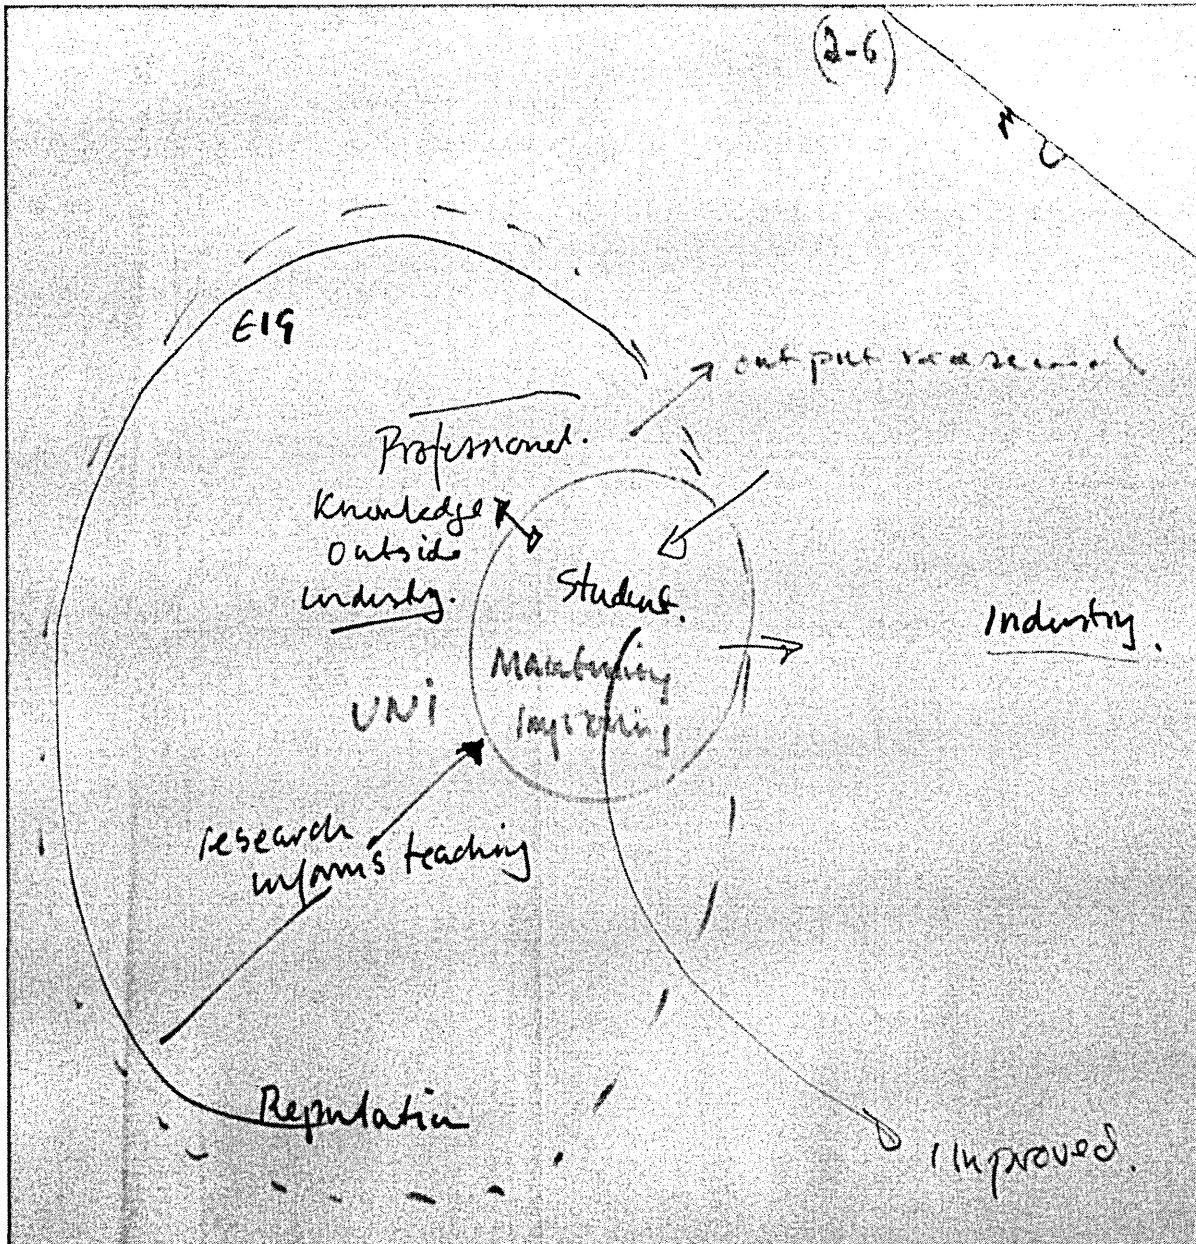 (2-6)
E19
output
Professional.
Knowledge
outside
industry.
Student.
Industry.
UNI
Improving
research
informs teaching
Reputation
Improved.